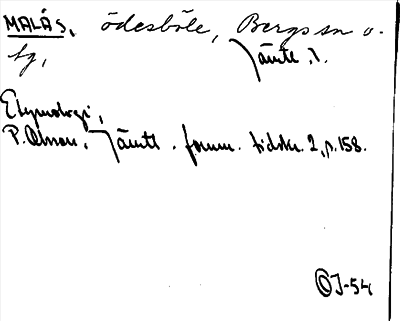 MALÅS, ödesböle, Bergs sn o.
tg, Jämtl. l.
Etymologi,
P. Olsson, Jämtl. fornm. tidskr. 2, p. 158.
OJ-54